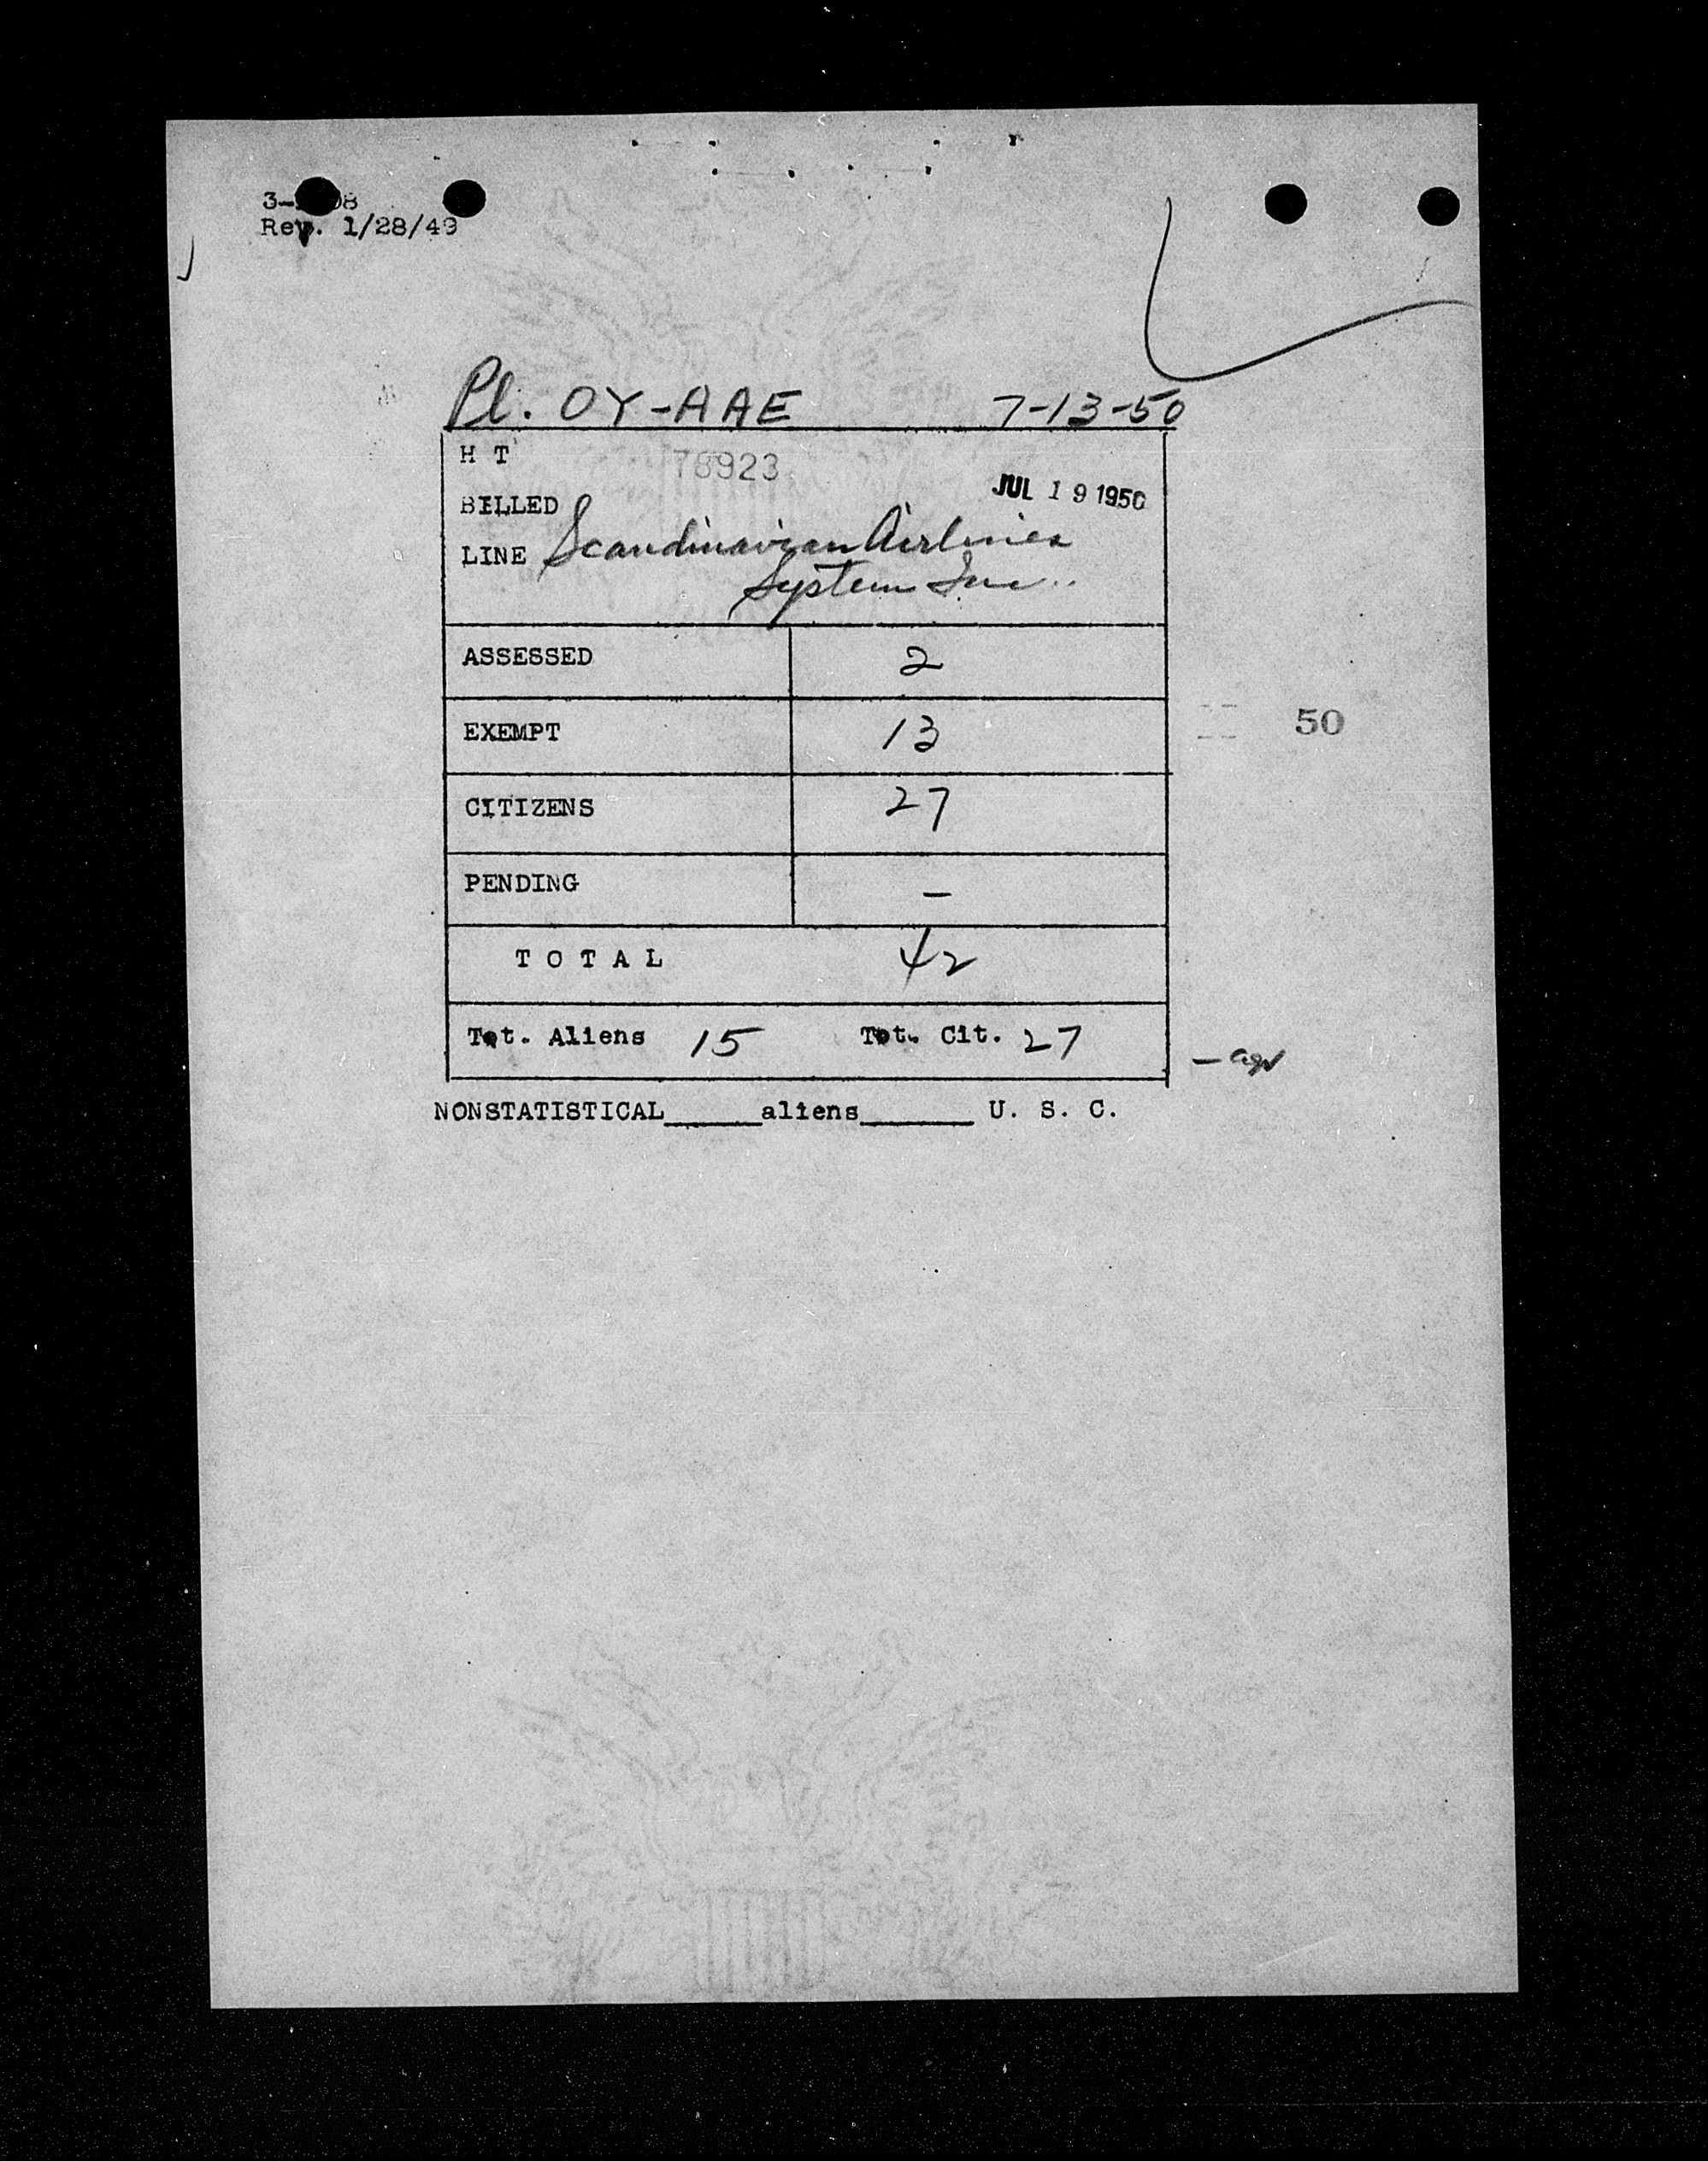 Rev. 1/28/49
Pl. OY-AAE 7-13-50
H T 78923
BILLED JUL 19 1950
LINE Scandinavian Airlines
System Inc..
ASSESSED 2
EXEMPT 13
50
CITIZENS 27
PENDING –
TOTAL 42
Tot. Aliens 15 Tot. Cit. 27
NONSTATISTICAL_____aliens______ U. S. C.